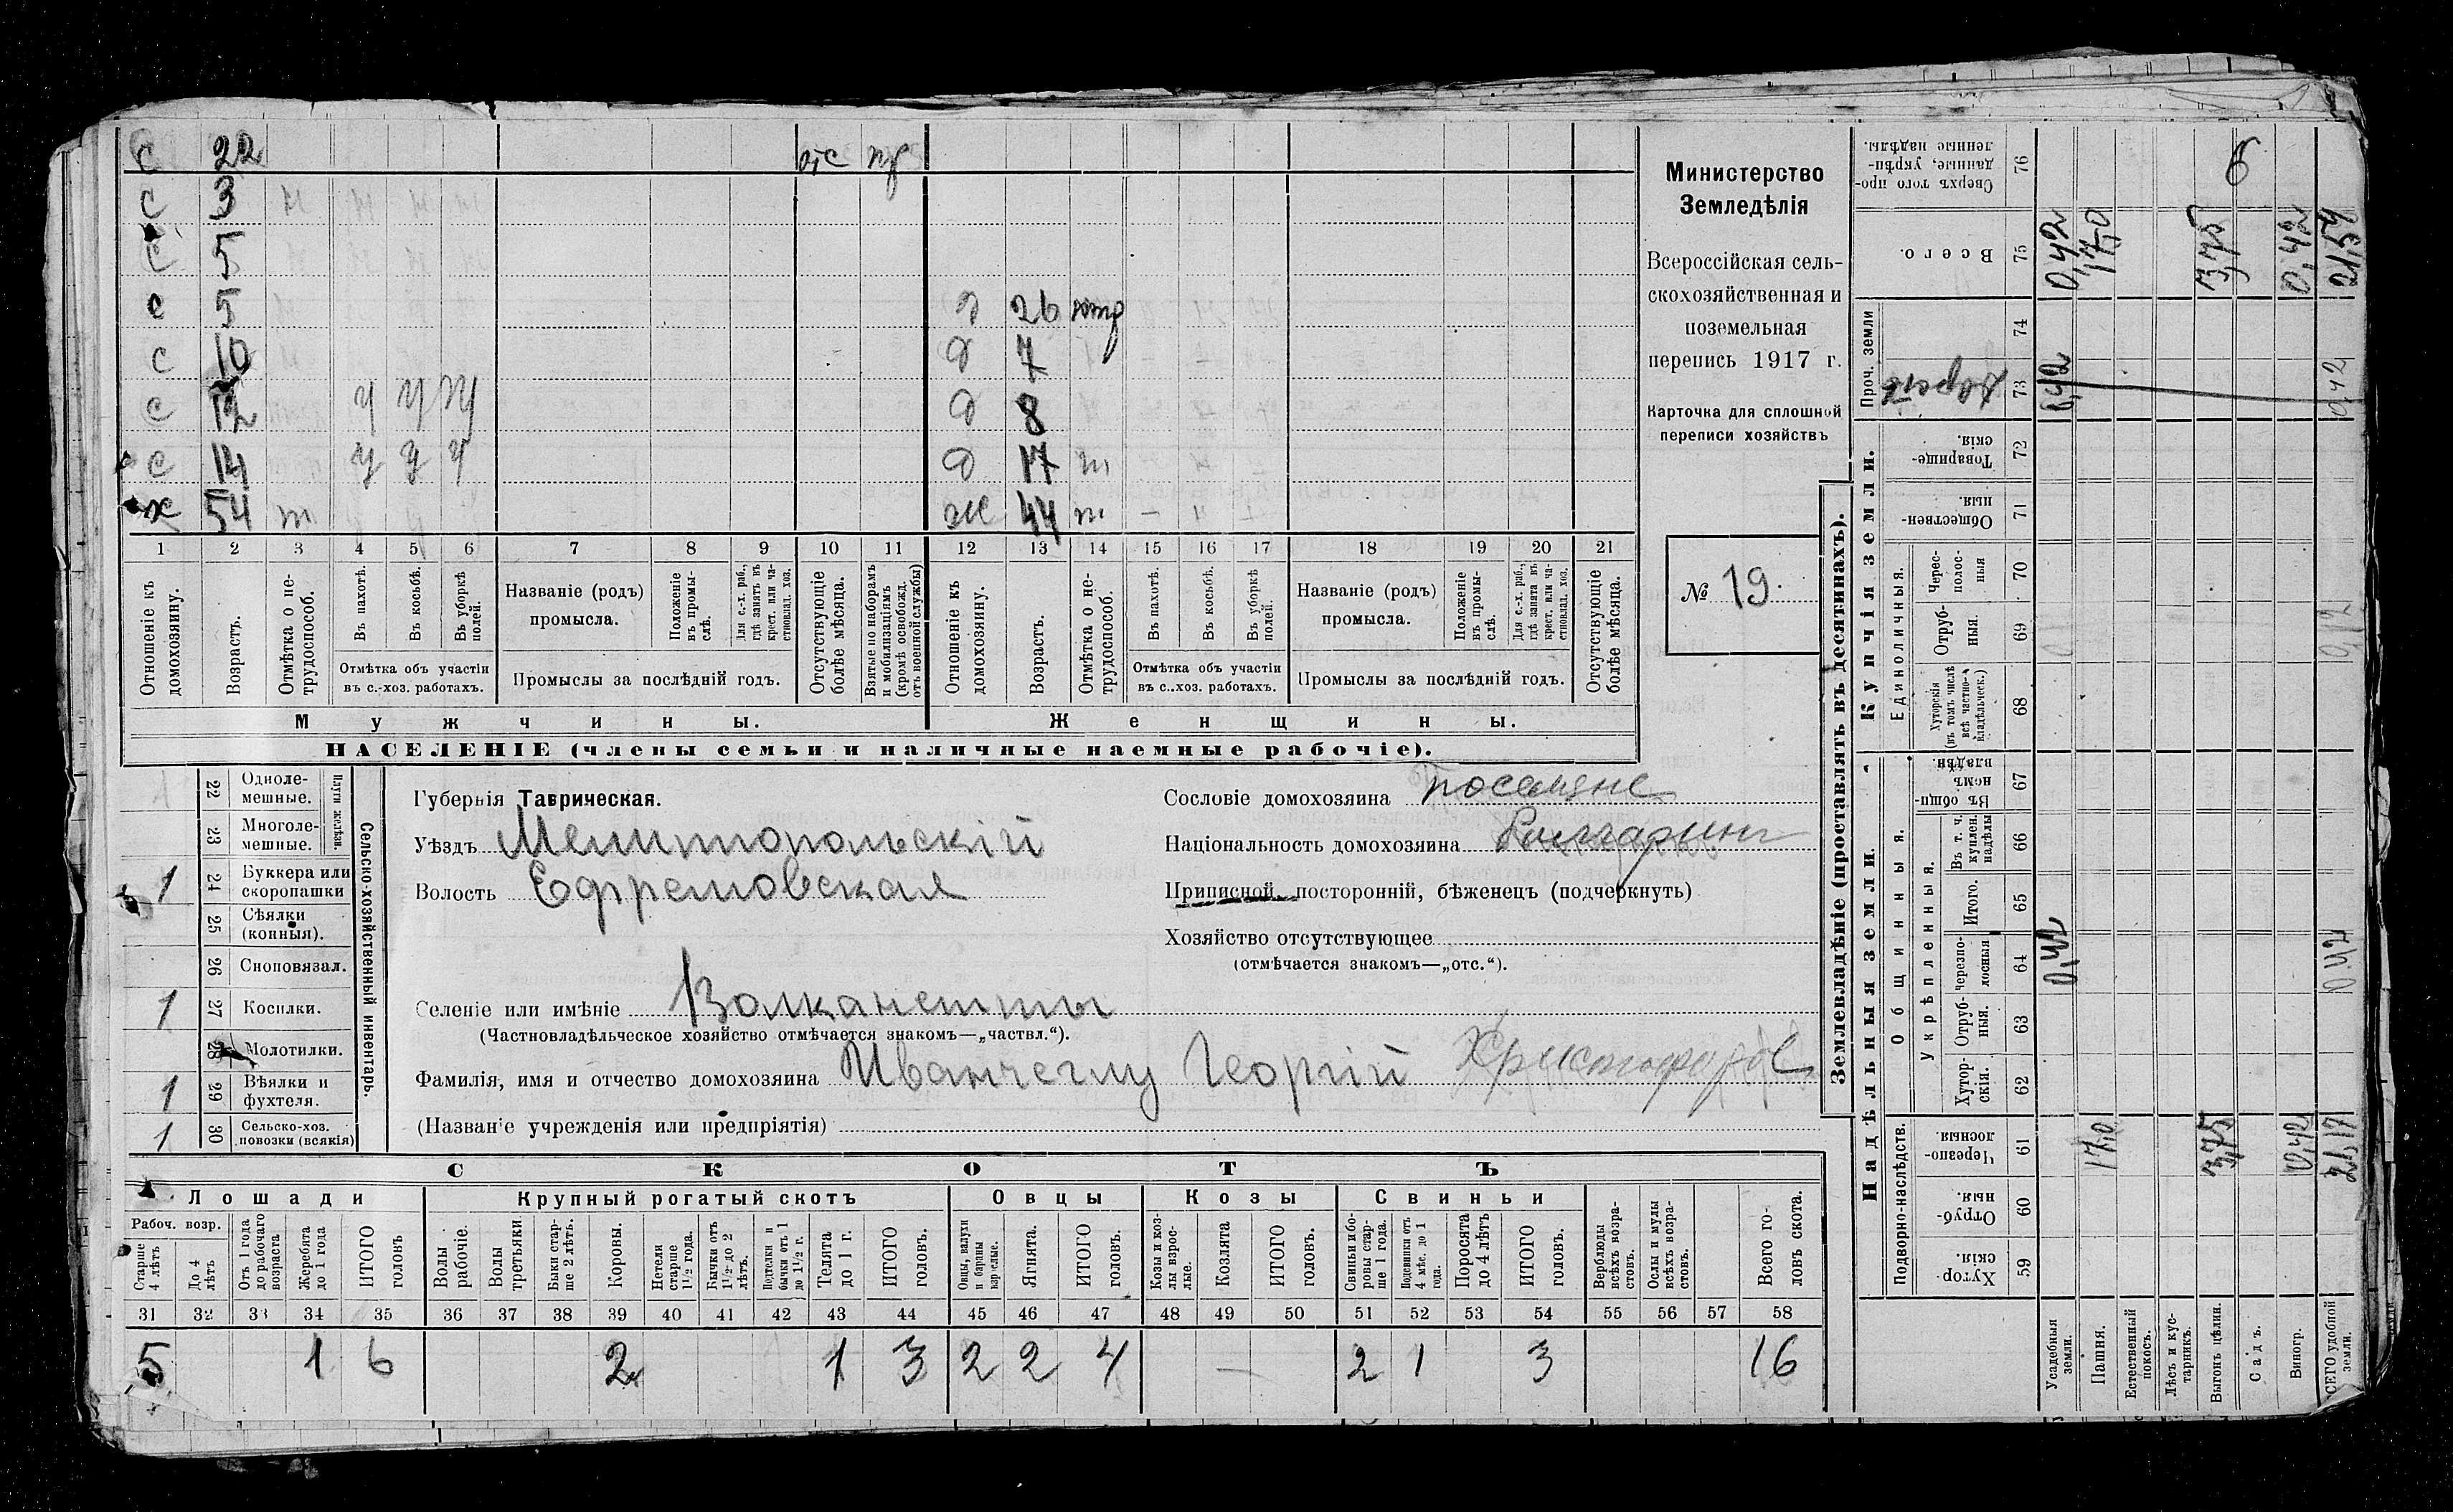 с 22 отс пр
с 3
с 5
с 5 д 26
с 10 д 7
с 12 у у у д 8
с 14 у у у д 17 т
х 54 т ж 44 т
1 2 3 4 5 6 7 8 9 10 11 12 13 14 15 16 17 18 19 20 21
Отношеніе къ домохозяину.
Возрастъ.
Отмѣтка о нетрудоспособ.
Въ пахотѣ.
Въ косьбѣ.
Въ уборкѣ полей.
Отмѣтка объ участіи
въ с.-хоз. работахъ.
Названіе (родъ)
промысла.
Положеніе въ промыслѣ.
Для с.-х. раб., гдѣ занятъ въ крест. или частновлад. хоз.
Промыслы за послѣдній годъ.
Отсутствующіе болѣе мѣсяца.
Взятые по наборамъ и мобилизаціямъ (кромѣ освобожд. отъ военной службы)
Отношеніе къ домохозяину.
Возрастъ.
Отмѣтка о нетрудоспособ.
Въ пахотѣ.
Въ косьбѣ.
Въ уборкѣ полей.
Отмѣтка объ участіи
въ с..хоз. работахъ.
Названіе (родъ)
промысла.
Положеніе въ промыслѣ.
Для с.-х. раб., гдѣ занята въ крест. или частновлад. хоз.
Промыслы за послѣдній годъ.
Отсутствующіе болѣе мѣсяца.
Мужчины. Женщины.
НАСЕЛЕНІЕ (члены семьи и наличные наемные рабочіе).
Министерство
Земледѣлія
Всероссійская сель-
скохозяйственная и
поземельная
перепись 1917 г.
Карточка для сплошной
переписи хозяйствъ
№ 19.
Плуги желѣзн.
Сельско-хозяйственный инвентарь.
22 Одноле-
мешные.
23 Многоле-
мешные.
1 24 Буккера или
скоропашки
25 Сѣялки
(конныя).
26 Сноповязал.
1 27 Косилки.
28 Молотилки.
1 29 Вѣялки и
фухтеля.
1 30 Сельско-хоз.
повозки (всякія)
Губернія Таврическая.
Уѣздъ Мелитопольскій
Волость Ефремовская
Селеніе или имѣніе Волканешты
(Частновладѣльческое хозяйство отмѣчается знакомъ—„частвл.“).
Фамилія, имя и отчество домохозяина Иванчеглу Георгій Христофоровъ
(Названіе учрежденія или предпріятія)
Сословіе домохозяина поселяне
Національность домохозяина Болгаринъ
Приписной, посторонній, бѣженецъ (подчеркнуть)
Хозяйство отсутствующее
(отмѣчается знакомъ—„отс.“).
СКОТЪ
Лошади Крупный рогатый скотъ Овцы Козы Свиньи
Рабоч. возр.
Старше 4 лѣтъ
До 4 лѣтъ
Отъ 1 года до рабочаго возраста
Жеребята до 1 года
ИТОГО головъ
Волы рабочіе.
Волы третьяки
Быки старше 2 лѣтъ.
Коровы.
Нетели старше 1 1/2 года.
Бычки отъ 1 1/2 до 2 лѣтъ.
Подтелки и бычки отъ 1 до 1 1/2 г.
Телята до 1 г.
ИТОГО головъ.
Овцы, валухи и бараны взрослые.
Ягнята.
ИТОГО головъ.
Козы и козлы взрослые.
Козлята
ИТОГО головъ.
Свиньи и боровы старше 1 года.
Подсвинки отъ 4 мѣс. до 1 года.
Поросята до 4 лѣтъ
ИТОГО головъ.
Верблюды всѣхъ возрастовъ.
Ослы и мулы всѣхъ возрастовъ.
Всего головъ скота.
31 32 33 34 35 36 37 38 39 40 41 42 43 44 45 46 47 48 49 50 51 52 53 54 55 56 57 58
5 1 6 2 1 3 2 2 4 — 2 1 3 16
Землевладѣніе (проставлять въ десятинахъ).
Надѣльныя земли. Купчія земли.
Подворно-наслѣдств.
Общинныя.
Укрѣпленныя.
Единоличныя.
Проч. земли
Сверхъ того проданные, укрѣпленные надѣлы. 76 6
Всего. 75 0,42 17,0 3,75 0,42 21,59
74
73 0,42 0,42
Товарищескія. 72
Общественныя. 71
Черес-полосныя 70
Отрубныя. 69
Хуторскія (въ томъ числѣ всѣ частновладѣльческ.) 68
Въ общинномъ владѣн. 67
Въ т. ч. куплен. надѣлы 66
Итого. 65
черезполосныя 64 0,42 0,42
Отрубныя. 63
Хуторскія. 62
Черезполосныя. 61 17,0 3,75 0,42 21,17
Отрубныя. 60
Хуторскія. 59
Усадебныя земли.
Пашня.
Естественный покосъ.
Лѣсъ и кустарникъ.
Выгонъ цѣлин.
Садъ.
Виногр.
ВСЕГО удобной земли.